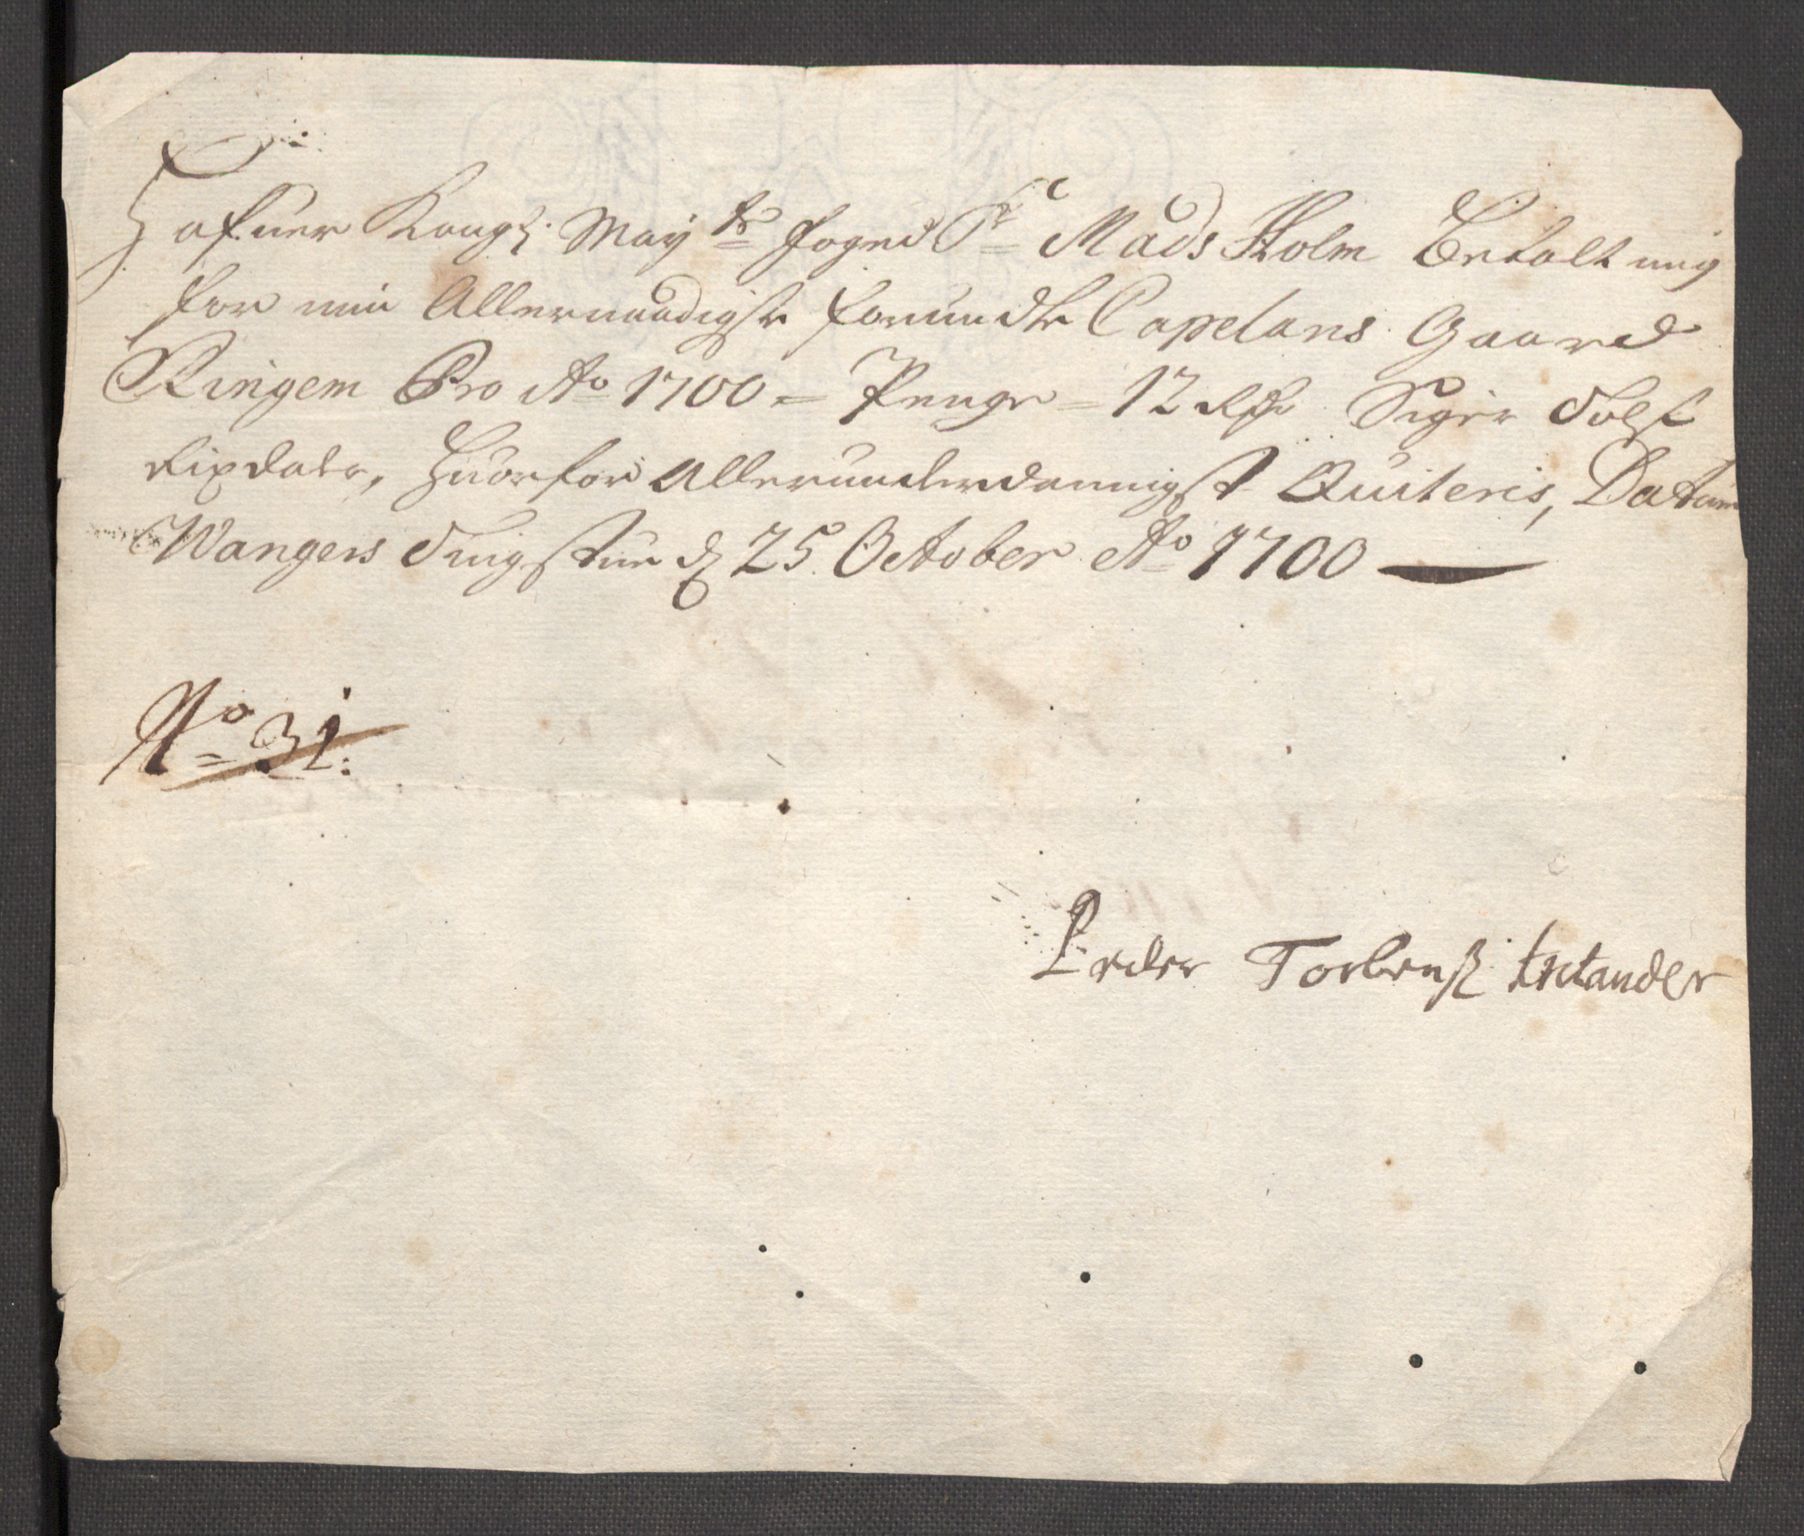 Hafuer Kongl. May:ts foged Sr Mads Holm Betalt mig
for min Allernaadigste forundte Capelans Gaard
Ringem Pro Ao 1700 = Penge = 12 Rdr Siger Tolf
Rixdaler, Huorfor Allerunderdannigst Quiteris, Datum
Wangens Tingstue d 25 October Ao 1700
No 31:
Peder Torbenß